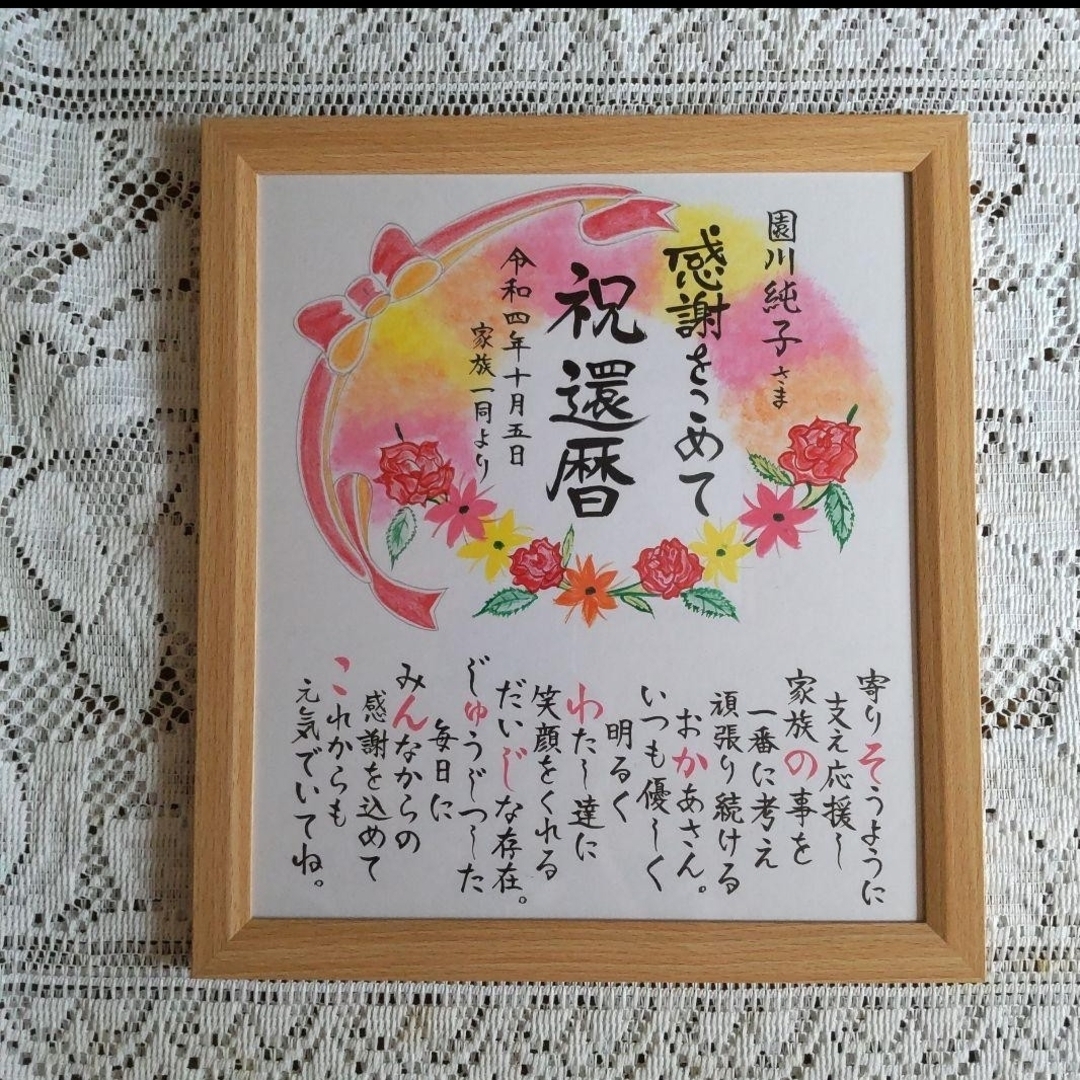 園川純子さま
感謝をこめて
祝還暦
令和四年十月五日
家族一同より
寄りそうように
支え応援し
家族の事を
一番に考え
頑張り続ける
おかあさん。
いつも優しく
明るく
わたし達に
笑顔をくれる
だいじな存在。
じゅうじつした
毎日に
みんなからの
感謝を込めて
これからも
元気でいてね。